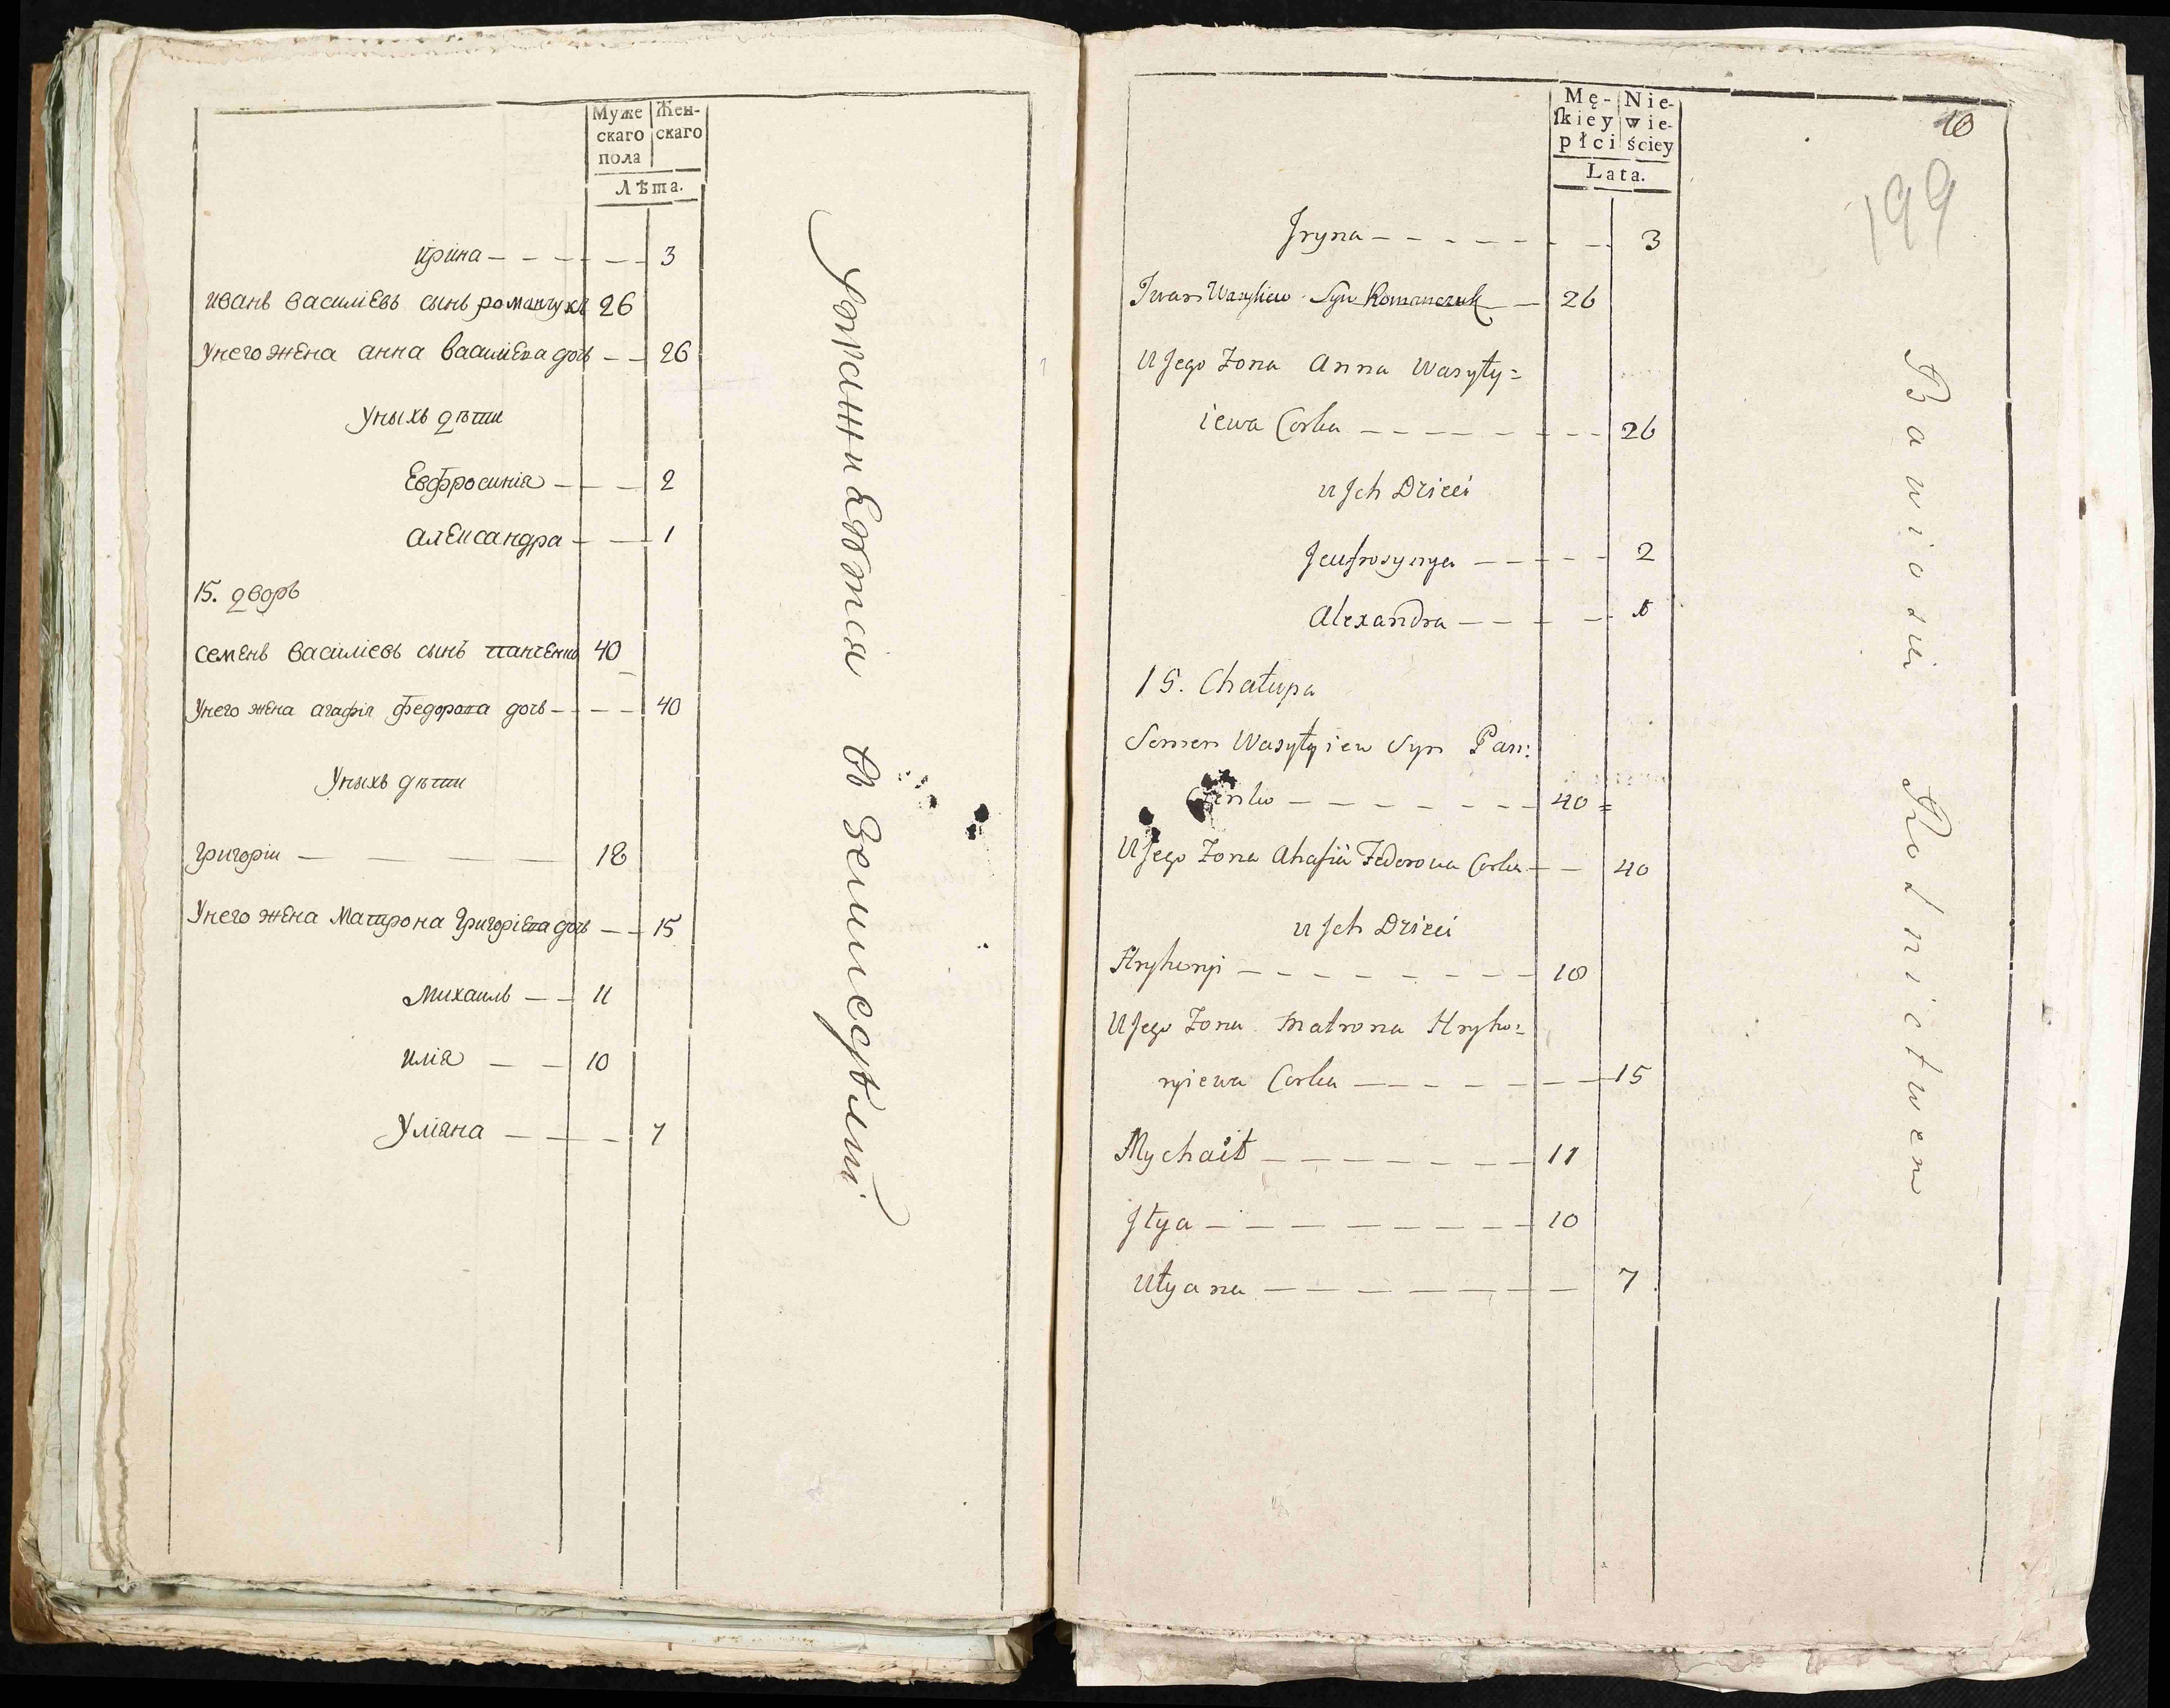 Муже Жен-
скаго скаго
пола
Лѣта.
Ирина — — — — — — 3
Иванъ Василіевъ сынъ романчукъ 26
Унего жена анна Василіева дочь — — 26
Уныхъ дѣти
Евфросинія — — — 2
Александра — — 1
15. дворъ
Семенъ Василіевъ сынъ панченко 40
Унего жена агафія федорова дочь — — — 40
Уныхъ дѣти
Григоріи — — — — — 18
Унего жена Матрона Григоріева дочь — — 15
Михаилъ — — 11
Илія — — 10
Уліяна — — — 7
Упражняются въ Земледѣліи
Mę- Nie-
skiey wie-
płci ściey
Lata.
10
199
Jryna — — — — — — — — 3
Iwan Wasyliew Syn Romanczuk — 26
U Jego Zona Anna Wasyły=
iewa Corka — — — — — — — — 26
u Jch Dzieci
Jeufrosynya — — — — — 2
Alexandra — — — — 1
15. Chałupa
Semen Wasyłyiew Syn Pan:
czenko — — — — — — — 40 =
U Jego Zona Ahafia Fedorowa Corka — — 40
u Jch Dzieci
Hryhoryi — — — — — — — — 18
U Jego Zona Matrona Hryho=
ryiewa Corka — — — — — — — 15
Mychaił — — — — — — — 11
Jłya — — — — — — — — 10
Ułyana — — — — — — — — 7
Bawio sie Rolnictwem